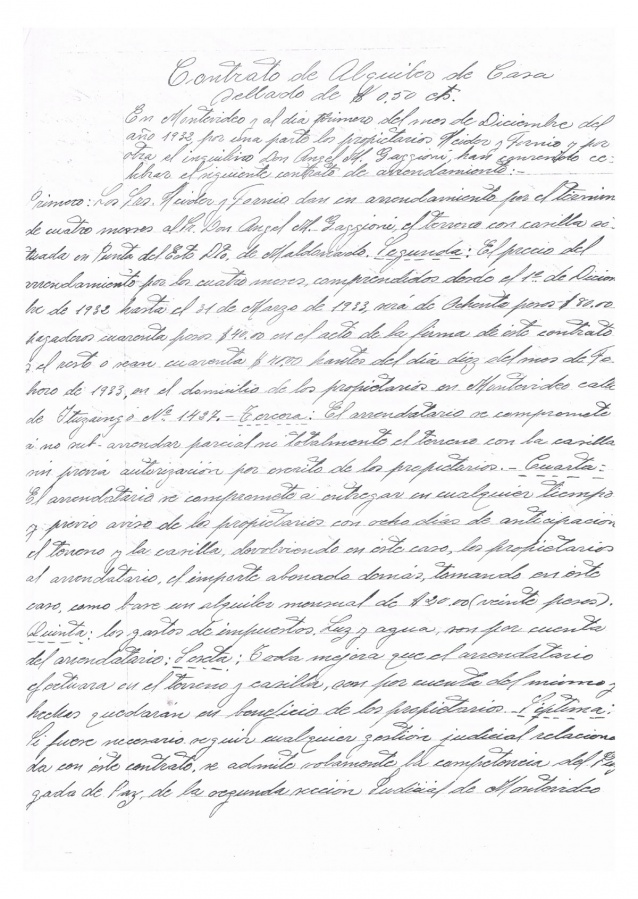 Contrato de Alquiler de Casa
Sellado de $ 0,50 cts.
En Montevideo y al dia primero del mes de Diciembre del
año 1932, por una parte los propietarios Heider y Fornio y por
otra el inquilino Don Angel M. Gaggioni, han convenido ce-
lebrar el siguiente contrato de arrendamiento:-
Primero: Los Srs. Heider y Fornio dan en arrendamiento por el termin
de cuatro meses al Sr. Don Angel M. Gaggioni, el terreno con casilla si-
tuada en Punta del Este Dto. de Maldonado. Segunda: El precio del
arrendamiento por los cuatro meses, comprendidos desde el 1º de Diciem
bre de 1932 hasta el 31 de Marzo de 1933, será de Ochenta pesos $ 80.00
pagaderos cuarenta pesos $ 40.00 en el acto de la firma de este contrato
y el resto o sean cuarenta $ 40.00 hantes del dia diez del mes de Fe-
brero de 1933, en el domicilio de los propietarios en Montevideo calle
de Ituzaingó Nº 1437.- Tercera: El arrendatario se compromete
á no sub-arrendar parcial ni totalmente el terreno con la casilla
sin previa autorización por escrito de los propietarios.- Cuarta:
El arrendatario se compromete á entregar en cualquier tiempo
y previo aviso de los propietarios con ocho dias de anticipacion
el terreno y la casilla, devolviendo en este caso, los propietarios
al arrendatario, el importe abonado demás, tomando en este
caso, como base un alquiler mensual de $ 20.00 (veinte pesos).
Quinta: los gastos de impuestos, Luz y agua, son por cuenta
del arrendatario; Sexta: Toda mejora que el arrendatario
efectuara en el terreno y casilla, son por cuenta del mismo y
hechas quedaran en beneficio de los propietarios. Septima:
Si fuere necesario seguir cualquier gestion judicial relaciona
da con este contrato, se admite solamente la competencia del Juz
gado de Paz, de la segunda seccion Judicial de Montevideo